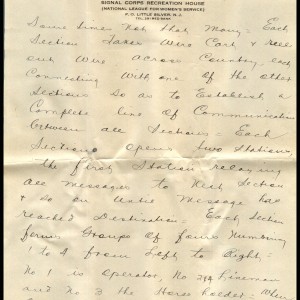 SIGNAL CORPS RECREATION HOUSE
(NATIONAL LEAGUE FOR WOMEN'S SERVICE)
P. O. LITTLE SILVER, N. J.
Some time not that many = Each
Section Takes Wire Cart & Reel
out Wire across Country each
Connecting with one of the other
Sections So as to Establish a
Complete line of Communication
between all Sections = Each
Section opens two Stations,
the first Station relaying
all messages to Next Section
& So on Until Message has
reached Destination. Each Section
forms Groups of fours Numbering
1 to 4 from Left to Right =
No 1 is Operator, No 2 Lineman
and No 3 the Horse holder =